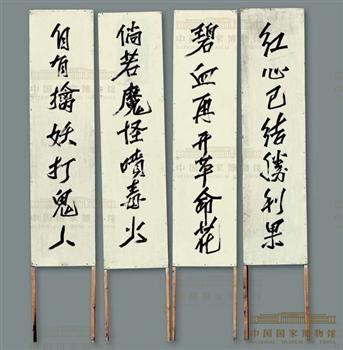 红心已结胜利果
碧血再开革命花
倘若魔怪喷毒火
自有擒妖打鬼人
中国国家博物馆
NATIONAL MUSEUM OF CHINA